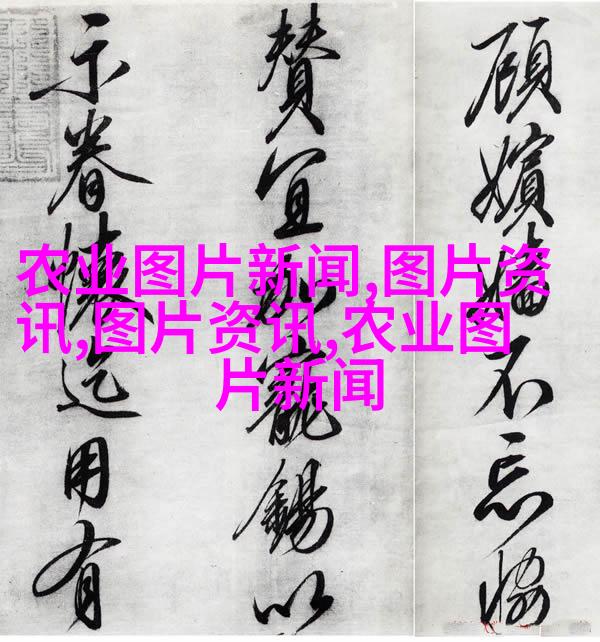 农业图片新闻,图片资
讯,图片资讯,农业图
片新闻
顧嬪嬙不忘恊
賛宜寵錫以
示眷懷迄用有